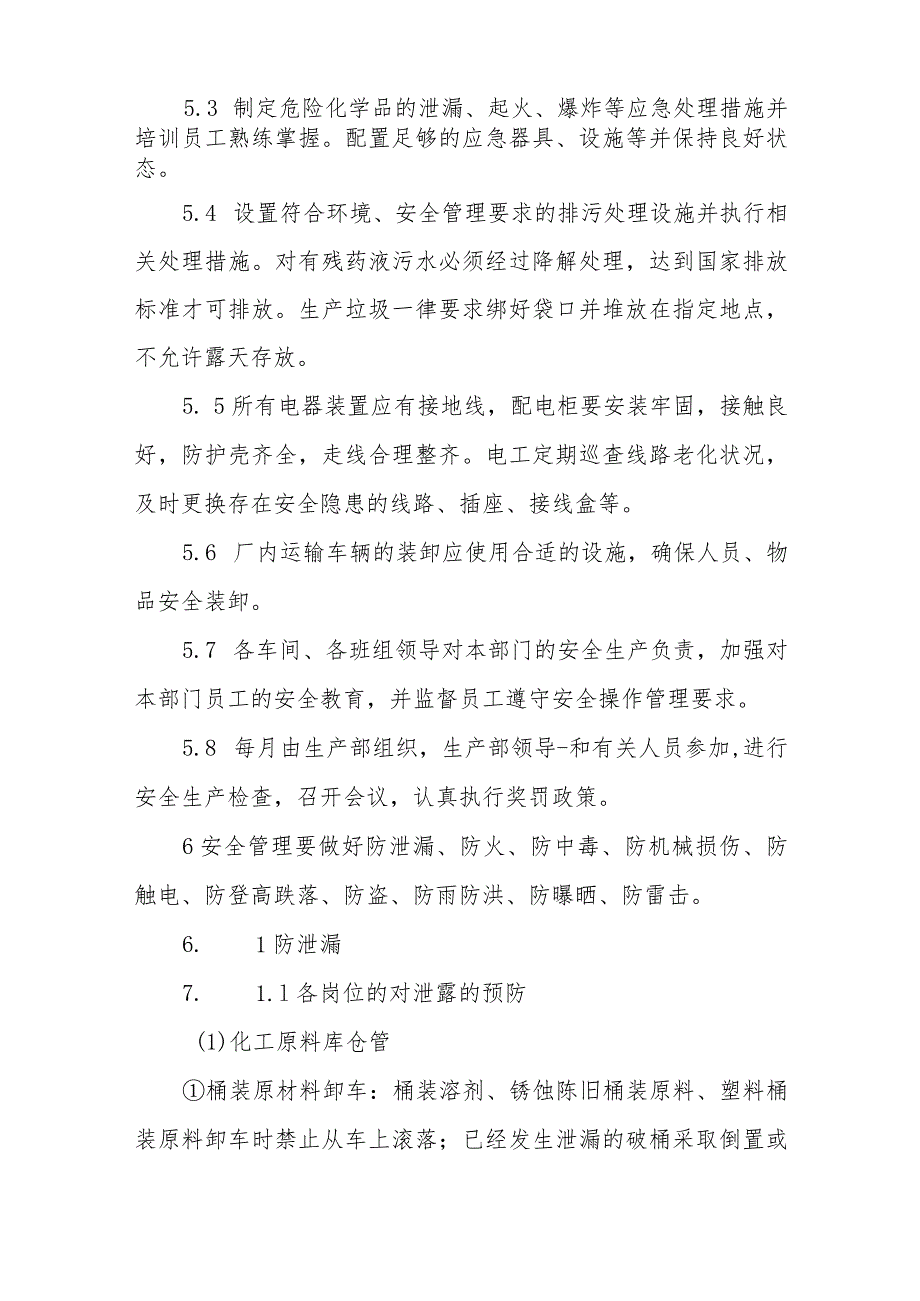 5.3 制定危险化学品的泄漏、起火、爆炸等应急处理措施并
培训员工熟练掌握。配置足够的应急器具、设施等并保持良好状
态。
5.4 设置符合环境、安全管理要求的排污处理设施并执行相
关处理措施。对有残药液污水必须经过降解处理，达到国家排放
标准才可排放。生产垃圾一律要求绑好袋口并堆放在指定地点，
不允许露天存放。
5. 5所有电器装置应有接地线，配电柜要安装牢固，接触良
好，防护壳齐全，走线合理整齐。电工定期巡查线路老化状况，
及时更换存在安全隐患的线路、插座、接线盒等。
5.6 厂内运输车辆的装卸应使用合适的设施，确保人员、物
品安全装卸。
5.7 各车间、各班组领导对本部门的安全生产负责，加强对
本部门员工的安全教育，并监督员工遵守安全操作管理要求。
5.8 每月由生产部组织，生产部领导-和有关人员参加,进行
安全生产检查，召开会议，认真执行奖罚政策。
6安全管理要做好防泄漏、防火、防中毒、防机械损伤、防
触电、防登高跌落、防盗、防雨防洪、防曝晒、防雷击。
6. 1防泄漏
7. 1.1各岗位的对泄露的预防
(1)化工原料库仓管
①桶装原材料卸车：桶装溶剂、锈蚀陈旧桶装原料、塑料桶
装原料卸车时禁止从车上滚落；已经发生泄漏的破桶采取倒置或